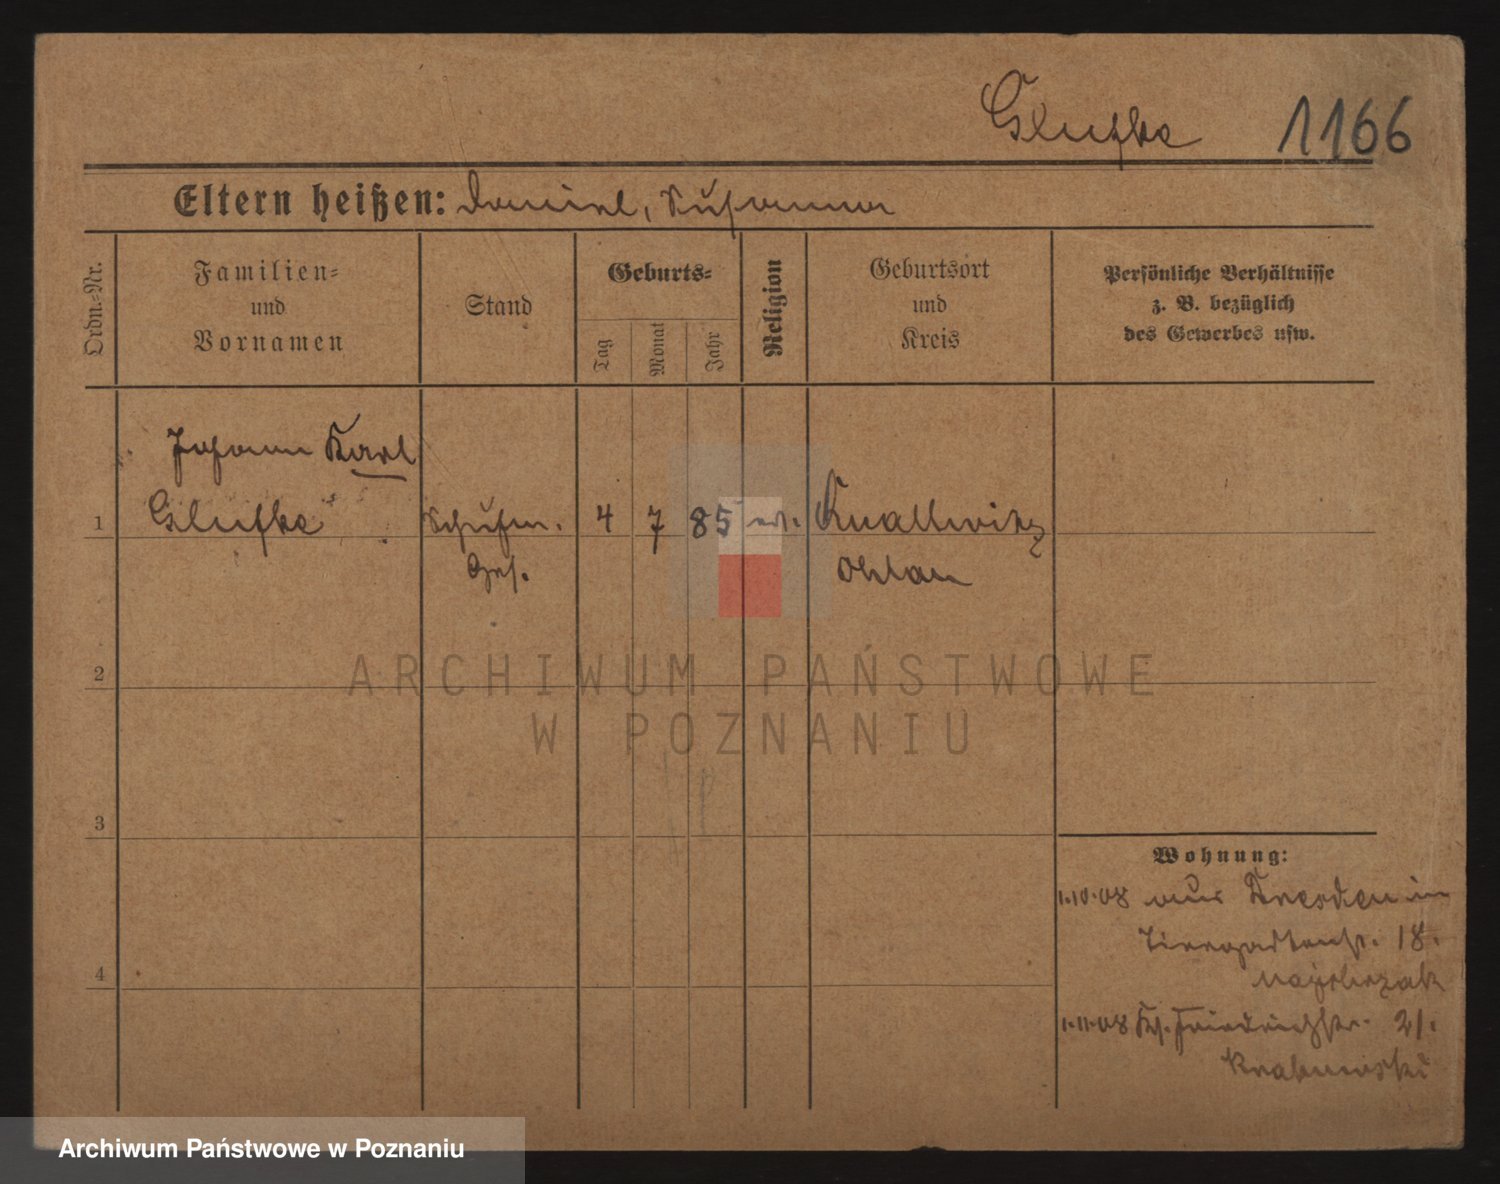 Glufke 1166
Eltern heißen: Daniel, Susanna
Ordn.-Nr.
Familien-
und
Vornamen
Stand
Geburts-
Tag
Monat
Jahr
Religion
Geburtsort
und
Kreis
Persönliche Verhältnisse
z. B. bezüglich
des Gewerbes usw.
Johann Karl
1 Glufke 4 7 85 ev.
Ges. Ohlau
2
ARCHIWUM PAŃSTWOWE
W POZNANIU
3
Wohnung:
1.10.08 aus Dresden in
Tiergartenstr. 18.
4
1.11.08 Friedrichstr. 21.
Archiwum Państwowe w Poznaniu